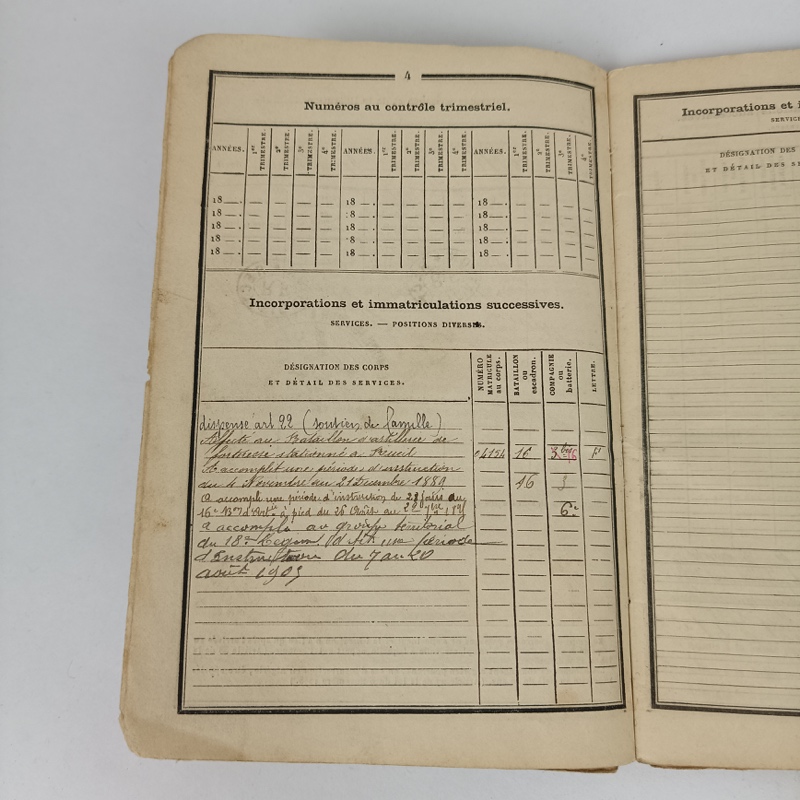 4
Numéros au contrôle trimestriel.
ANNÉES. 1er TRIMESTRE. 2e TRIMESTRE. 3e TRIMESTRE. 4e TRIMESTRE. ANNÉES. 1er TRIMESTRE. 2e TRIMESTRE. 3e TRIMESTRE. 4e TRIMESTRE. ANNÉES. 1er TRIMESTRE. 2e TRIMESTRE. 3e TRIMESTRE. 4e TRIMESTRE.
18 . 18 . 18 .
18 . 18 . 18 .
18 . 18 . 18 .
18 . 18 . 18 .
18 . 18 . 18 .
Incorporations et immatriculations successives.
SERVICES. — POSITIONS DIVERSES.
DÉSIGNATION DES CORPS
ET DÉTAIL DES SERVICES.
NUMÉRO MATRICULE au corps.
BATAILLON ou escadron.
COMPAGNIE ou batterie.
LETTRE.
dispensé art 22 (soutien de famille)
Affecté au Bataillon d'artillerie de
forteresse stationné à Rueil 16e
A accompli une période d'instruction
du 4 Novembre au 21 Décembre 1889 16 3
a accompli une période d'instruction de 28 jours au
16e d'Artie à pied du 26 Août au 6e
a accompli au groupe territorial
du 18e d'Art une période
d'Instruction du 7 au 20
août 1903
Incorporations et
SERVICES
DÉSIGNATION DES
ET DÉTAIL DES